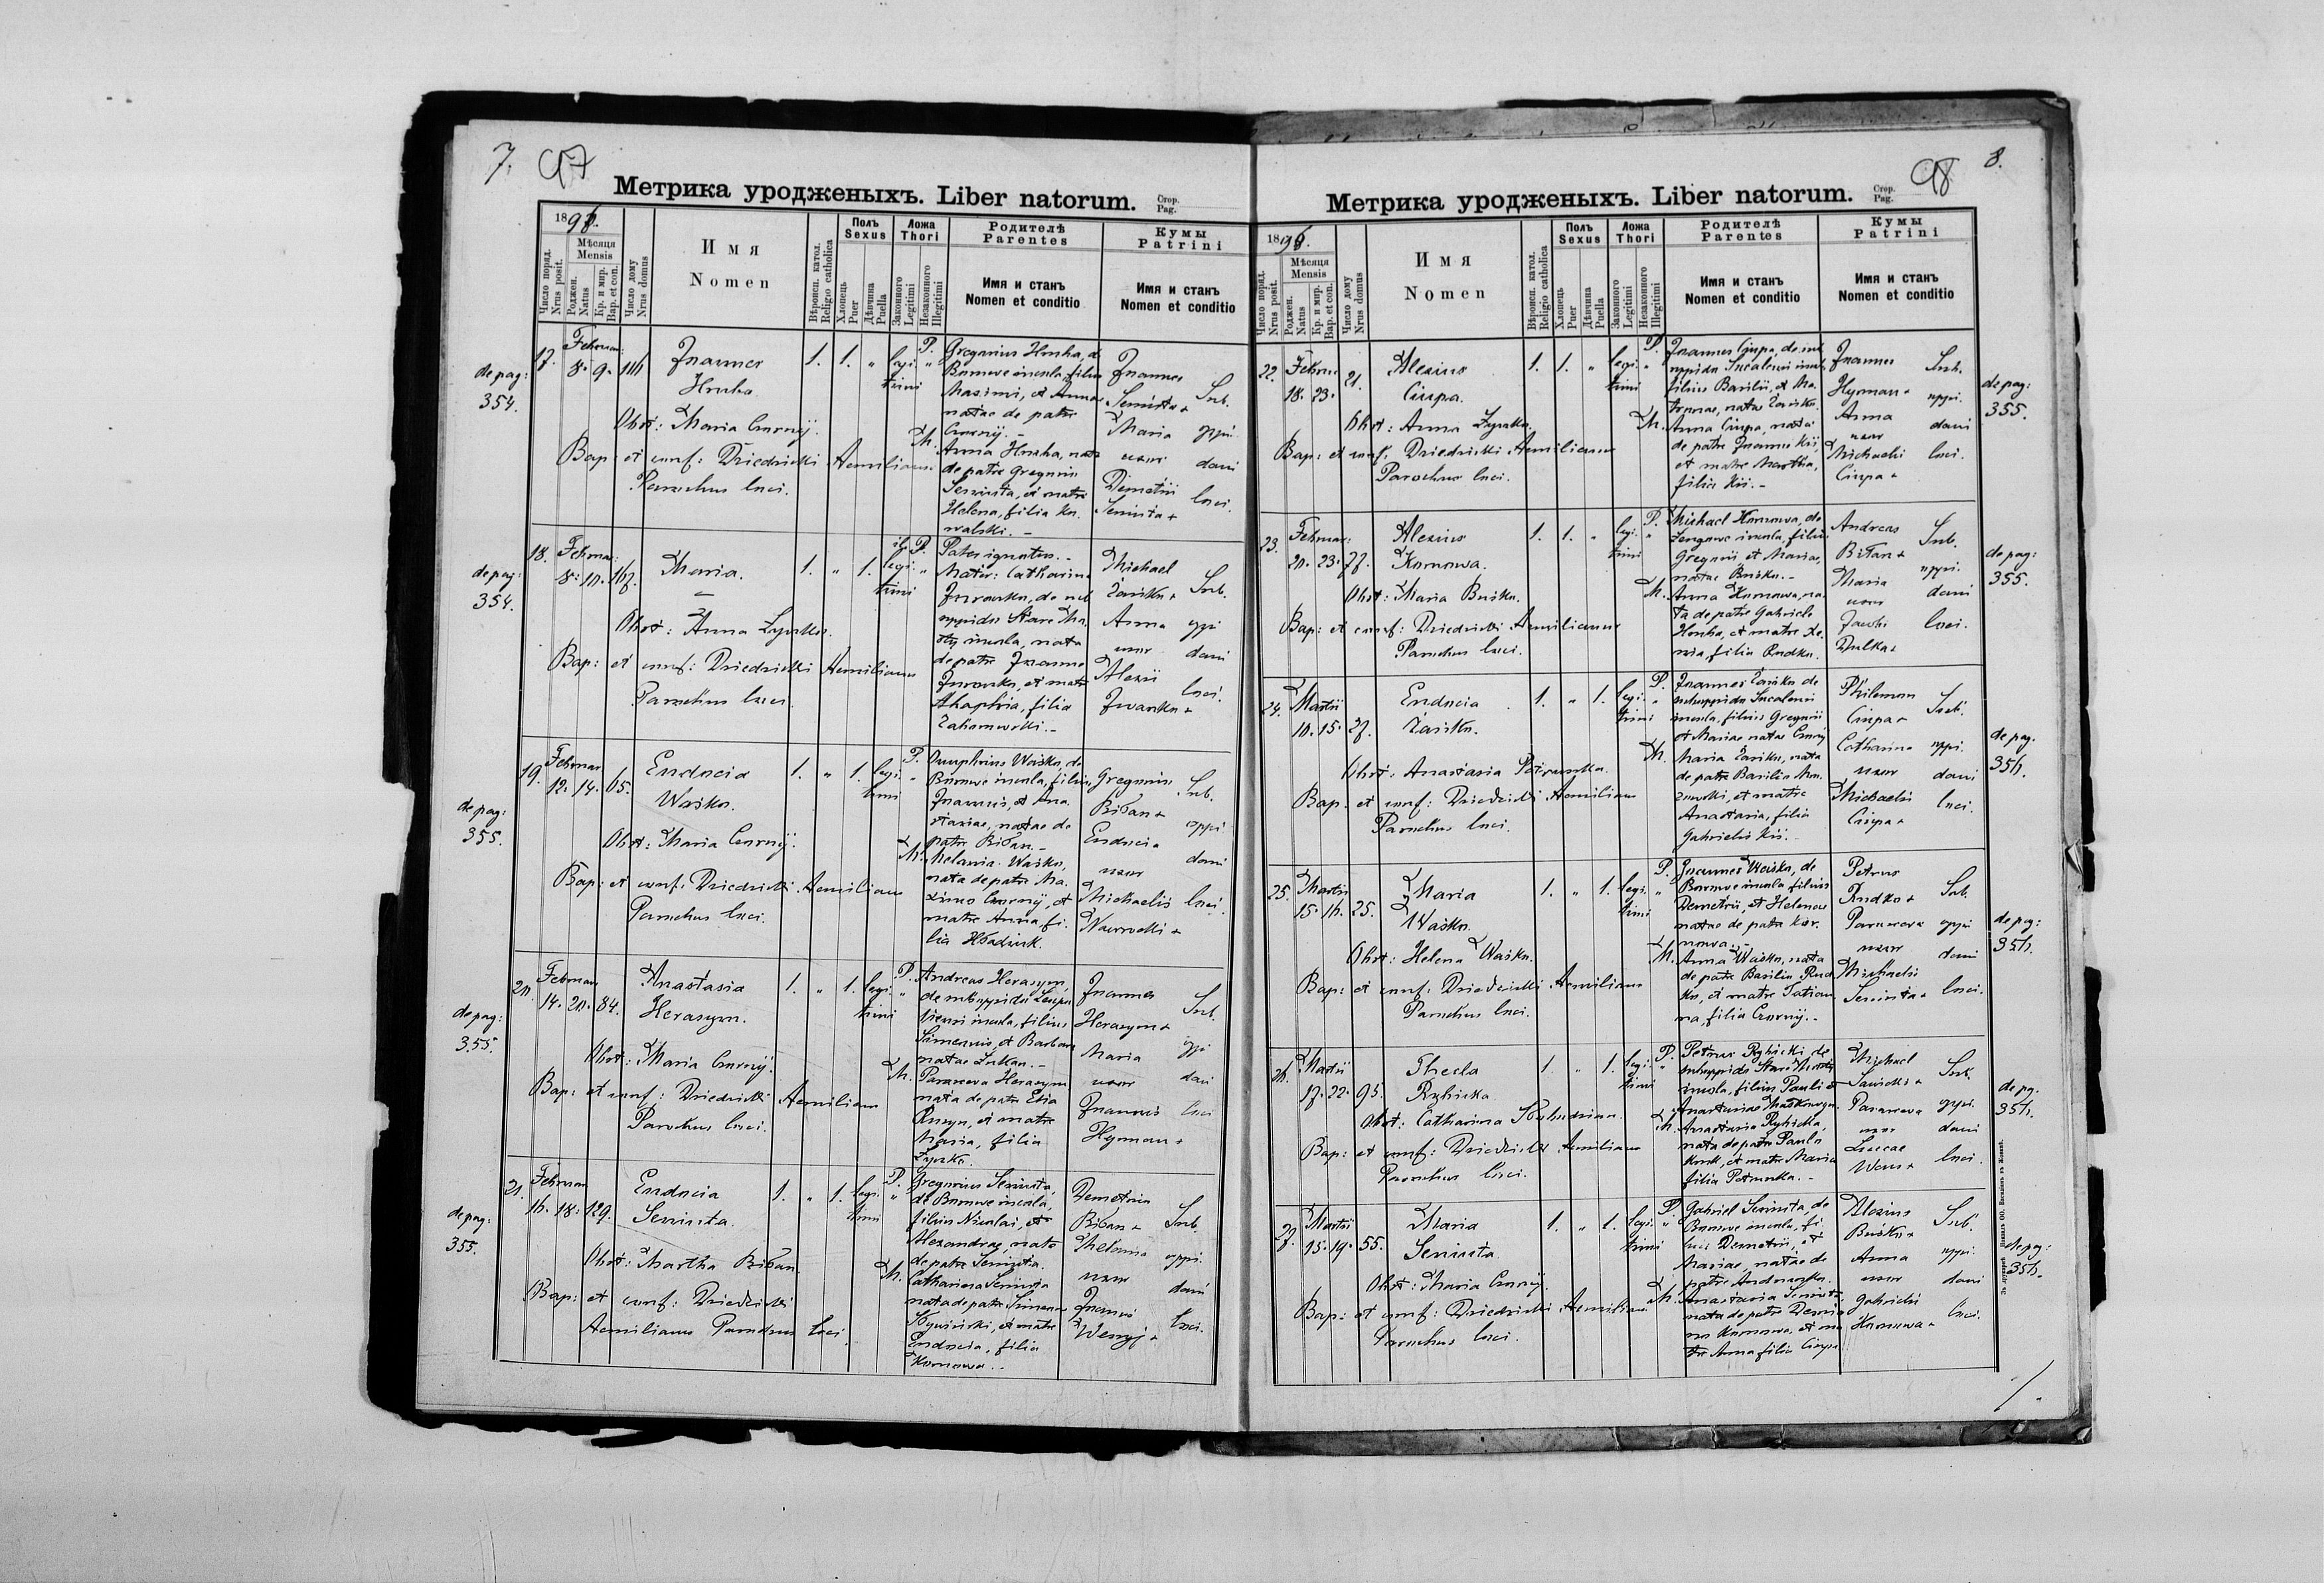 7. 97
Метрика уродженыхъ. Liber natorum. Стор. Pag.
1896.
Число поряд. Nrus posit.
Мѣсяця Mensis
Роджен. Natus
Кр. и мир. Bap. et con.
Число дому Nrus domus
Имя Nomen
Вѣроисп. катол. Religio catholica
Полъ Sexus
Хлопець Puer
Дѣвчина Puella
Ложа Thori
Законного Legitimi
Незаконного Illegitimi
Родителѣ Parentes
Имя и станъ Nomen et conditio
Кумы Patrini
Имя и станъ Nomen et conditio
de pag: 354.
17. Februar: 8. 9.
Joannes
Hruha
1. 1. " legitimi "
Obst: Maria Czornyj.
Bap: et conf: Dziedzicki Aemilianus
Parochus loci.
P. Gregorius Hruha, de
Buniowe incola, filius
Maximi, et Anna
natae de patre
Czornyj. -
M. Anna Hruha, nata
de patre Gregorio
Seniuta, et matre
Helena, filia Ko
walski. -
Joannes
Seniuta +
Maria
uxor
Demetrii
Seniuta +
Sub
oppi
dani
loci.
de pag: 354.
18. Februar: 8. 10. 167.
Maria.
1. " 1. illegitimi "
Obst: Anna Zyrko.
Bap: et conf: Dziedzicki Aemilianus
Parochus loci.
P. Pater ignotus. -
Mater: Catharina
de sub
oppido Stare Mia
sty incola, nata
de patre Joanne
et matre
Ahaphia, filia
Michael
Zaiśko +
Anna
uxor
Alexii
Iwanko +
Sub.
oppi
dani
loci.
de pag: 355.
19. Februar 12. 14. 65.
Eudocia
Waśko.
1. " 1. legitimi "
Obst: Maria Czornyj.
Bap: et conf: Dziedzicki Aemilianus
Parochus loci.
P. Onuphrius Waśko, de
Buniowe incola, filius
Joannis, et Ana
stasiae, natae de
patre Biban. -
M. Melania Waśko,
nata de patre Ma
ximo Czornyj, et
matre Anna, fi
lia Hładiuk.
Gregorius
Biban +
Eudocia
uxor
Michaelis
Nawrocki +
Sub.
oppi
dani
loci.
de pag: 355.
20. Februar 14. 20. 84.
Anastasia
Herasym.
1. " 1. legitimi "
Obst: Maria Czornyj.
Bap: et conf: Dziedzicki Aemilianus
Parochus loci.
P. Andreas Herasym,
de suboppido
incola, filius
Simeonis, et Barbara
natae Lukan. -
M. Parasceva Herasym
nata de patre Elia
et matre
Maria, filia
Zyrko.
Joannes
Herasym +
Maria
uxor
Joannis
Hyman +
Sub.
oppi
dani
loci
de pag: 355.
21. Februar 16. 18. 129.
Eudocia
Seniuta.
1. " 1. legitimi "
Obst: Martha Biban.
Bap: et conf: Dziedzicki
Aemilianus Parochus loci.
P. Gregorius Seniuta,
de Buniowe incola,
filius Nicolai, et
Alexandrae, nata
de patre Seniuta.
M. Catharina Seniuta
nata de patre Simeone
et matre
Eudocia, filia
Komowa. -
Demetrius
Biban +
Melania
uxor
Joannis
Sub.
oppi
dani
loci.
98 8.
Метрика уродженыхъ. Liber natorum. Стор. Pag.
1896.
Число поряд. Nrus posit.
Мѣсяця Mensis
Роджен. Natus
Кр. и мир. Bap. et con.
Число дому Nrus domus
Имя Nomen
Вѣроисп. катол. Religio catholica
Полъ Sexus
Хлопець Puer
Дѣвчина Puella
Ложа Thori
Законного Legitimi
Незаконного Illegitimi
Родителѣ Parentes
Имя и станъ Nomen et conditio
Кумы Patrini
Имя и станъ Nomen et conditio
22. Februar 18. 23. 21.
Alexius
Ciupa.
1. 1. " legitimi "
Obst: Anna Zyrko.
Bap: et conf: Dziedzicki Aemilianus
Parochus loci.
P. Joannes Ciupa, de sub
oppido incola
filius Basilii, et Ma
tronae, natae Zaiśko.
M. Anna Ciupa, nata
de patre Joanne Kij,
et matre Martha,
filia Kij. -
Joannes
Hyman +
Anna
uxor
Michaelis
Ciupa +
Sub.
oppi.
dani
loci.
de pag: 355.
23. Februar: 20. 23. 77.
Alexius
Komowa.
1. 1. " legitimi "
Obst: Maria Buśko.
Bap: et conf: Dziedzicki Aemilianus
Parochus loci.
P. Michael Komowa, de
incola, filius
Gregorii, et Mariae,
natae Buśko. -
M. Anna Komowa, na
ta de patre Gabriele
Hruha, et matre Xe
nia, filia Rudko.
Andreas
Biban +
Maria
uxor
Jacobi
Dulka +
Sub.
oppi.
dani
loci.
de pag: 355.
24. Martii 10. 15. 27.
Eudocia
Zaiśko.
1. " 1. legitimi "
Obst: Anastasia
Bap: et conf: Dziedzicki Aemilianus
Parochus loci.
P. Joannes Zaiśko de
suboppido
incola, filius Gregorii
et Mariae natae Czornyj
M. Maria Zaiśko, nata
de patre Basilio
et matre
Anastasia, filia
Gabrielis Kij. -
Philemon
Ciupa +
Catharina
uxor
Michaelis
Ciupa +
Sub.
oppi.
dani
loci.
de pag. 356.
25. Martii 15. 16. 25.
Maria
Waśko.
1. " 1. legitimi "
Obst: Helena Waśko.
Bap: et conf: Dziedzicki Aemilianus
Parochus loci.
P. Joannes Waśko, de
Buniowe incola filius
Demetrii, et Helenae
natae de patre
M. Anna Waśko, nata
de patre Basilio Rud
ko, et matre Tatian
na, filia Czornyj. -
Petrus
Rudko +
Parasceva
uxor
Michaelis
Seniuta +
Sub.
oppi
dani
loci.
de pag: 356.
26. Martii 17. 22. 95.
Thecla
Rybicka
1. " 1. legitimi "
Obst: Catharina
Bap: et conf: Dziedzicki Aemilianus
Parochus loci.
P. Petrus Rybicki, de
suboppido Stare Miasty
incola, filius Pauli et
Anastasiae
M. Anastasia Rybicka,
nata de patre Paulo
et matre Maria
filia Petruska. -
Michael
Sawicki +
Parasceva
uxor
Lucae
Sub.
oppi.
dani
loci.
de pag. 356.
27. Martii 15. 19. 55.
Maria
Seniuta
1. " 1. legitimi "
Obst: Maria Czornyj
Bap: et conf: Dziedzicki Aemilianus
Parochus loci.
P. Gabriel Seniuta, de
Buniowe incola, fi
lius Demetrii, et
Mariae, natae de
patre
M. Anastasia Seniuta,
nata de patre
Komowa, et ma
tre Anna filia Ciupa
Alexius
Buśko +
Anna
uxor
Gabrielis
Komowa +
Sub.
oppi.
dani
loci.
de pag: 356.